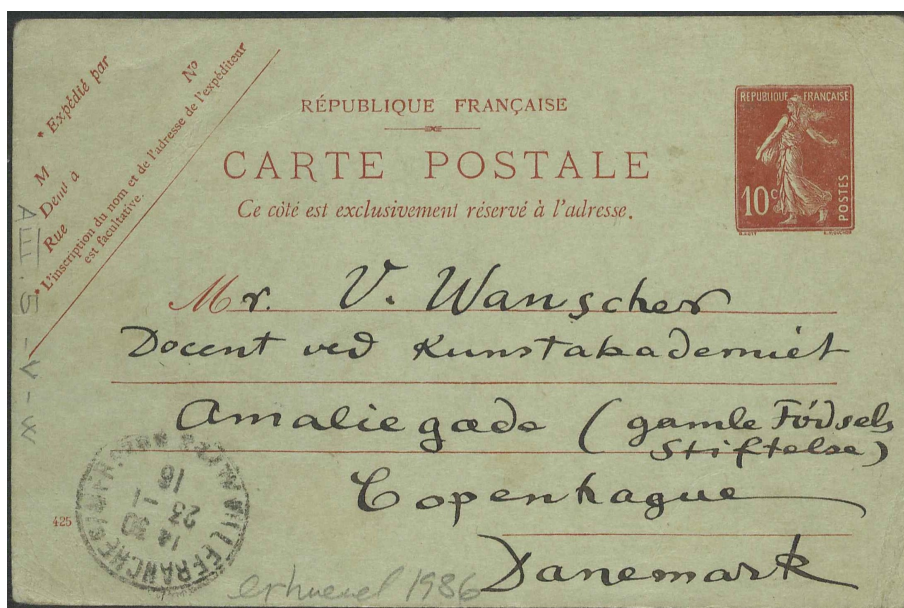 * Expédié par
M
Demt à
Rue N°
* L'inscription du nom et de l'adresse de l'expéditeur
est facultative.
RÉPUBLIQUE FRANÇAISE
CARTE POSTALE
Ce côté est exclusivement réservé à l'adresse.
REPUBLIQUE FRANÇAISE
10c
POSTES
Mr. V. Wanscher
Docent ved Kunstakademiet
Amaliegade (gamle Fødsels
Stiftelse)
Copenhague
Danemark
AIII.5-V-W
VILLEFRANCHE
14 30
23 -1
16
425
erhvervet 1986